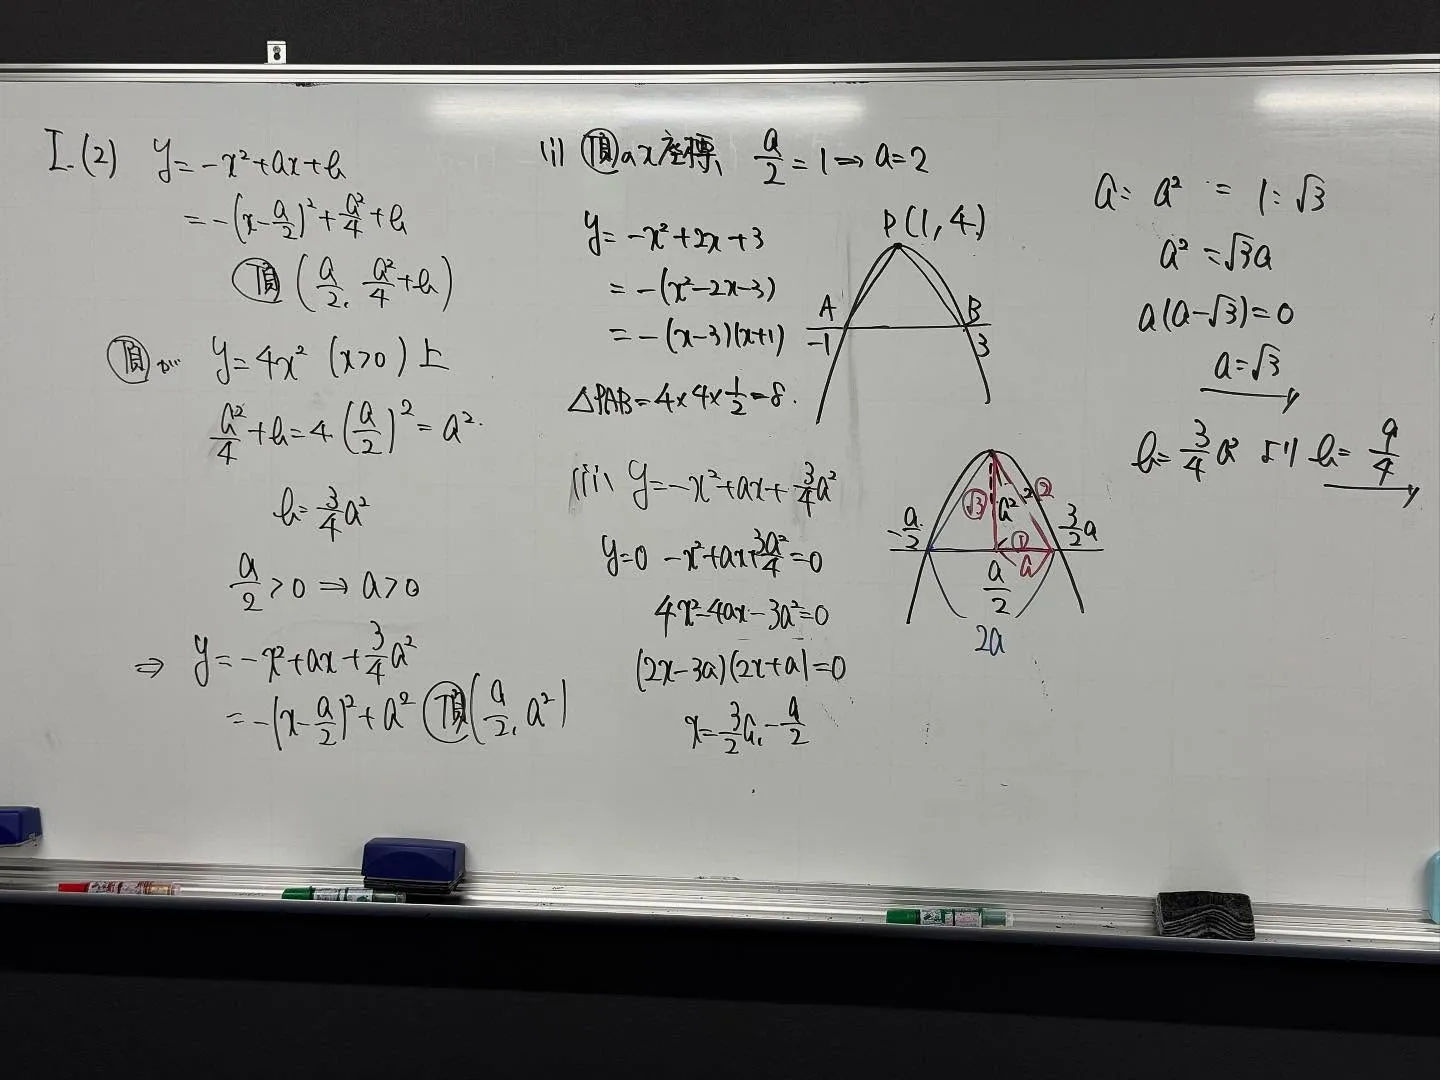 I.(2) y=-x²+ax+b
=-(x-a/2)²+a²/4+b
頂(a/2, a²/4+b)
頂が y=4x² (x>0)上
a²/4+b=4・(a/2)²=a².
b=3/4a²
a/2>0⇒a>0
⇒ y=-x²+ax+3/4a²
=-(x-a/2)²+a² 頂(a/2, a²)
(i) 頂のx座標、a/2=1⇒a=2
y=-x²+2x+3
=-(x²-2x-3)
=-(x-3)(x+1)
△PAB=4×4×1/2=8.
P(1,4)
A B
-1 3
(ii) y=-x²+ax+3/4a²
y=0 -x²+ax+3a²/4=0
4x²-4ax-3a²=0
(2x-3a)(2x+a)=0
x=3/2a, -a/2
√3 a² 2
-a/2 3/2a
1
a
a/2
2a
a:a²=1:√3
a²=√3a
a(a-√3)=0
a=√3
b=3/4a²より b=9/4